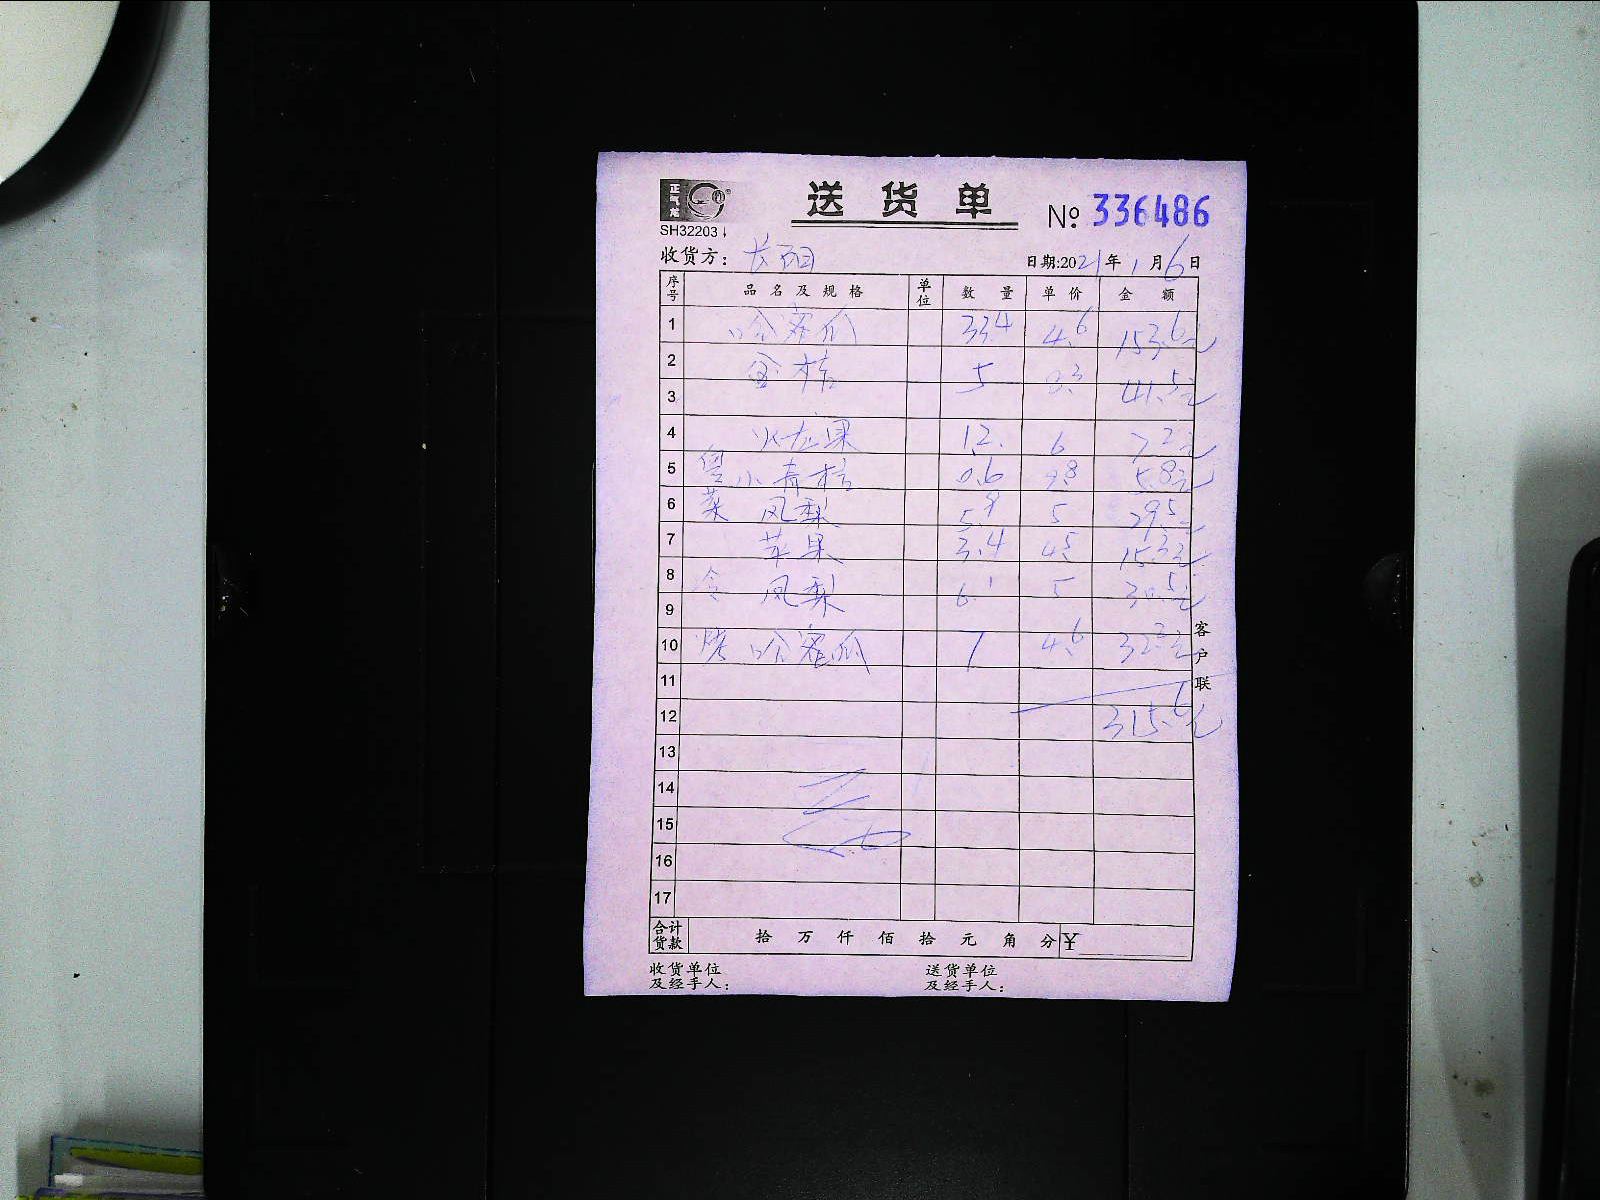 正气龙
送货单
№ 336486
SH32203
收货方: 长阳
日期:2021年1月6日
序号 品名及规格 单位 数量 单价 金额
1 哈密瓜 33.4 4.6 153.6元
2 金桔 5 8.3 41.5元
3
4 火龙果 12. 6 72元
5 小青桔 0.6 9.8 5.8元
6 菜 凤梨 5.9 5 29.5元
7 苹果 3.4 4.5 15.3元
8 冷 凤梨 6.1 5 30.5元
9
10 烤 哈密瓜 7 4.6 32.2元
11
12 315.6元
13
14
15
16
17
客户联
合计货款 拾 万 仟 佰 拾 元 角 分 ¥
收货单位 送货单位
及经手人: 及经手人: